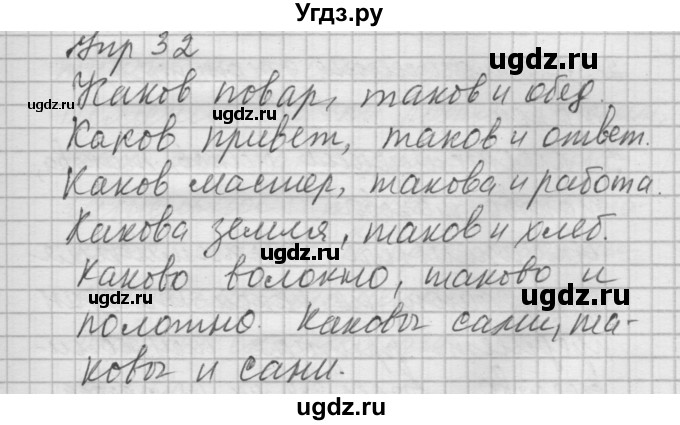 Угдз.ру
Упр 32
Каков повар, таков и обед.
Каков привет, таков и ответ.
Каков мастер, такова и работа.
Какова земля, таков и хлеб.
Каково волокно, таково и
полотно. Каковы сами, та-
ковы и сани.
ugdz.ru
ugdz.ru
ugdz.ru
ugdz.ru
ugdz.ru
ugdz.ru
ugdz.ru
ugdz.ru